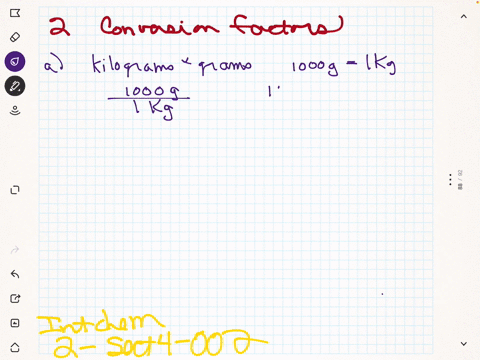 2 Conversion factors
a) kilograms & grams 1000g = 1Kg
1000 g
1 Kg
Int chem
2 - Sect 4 - 002